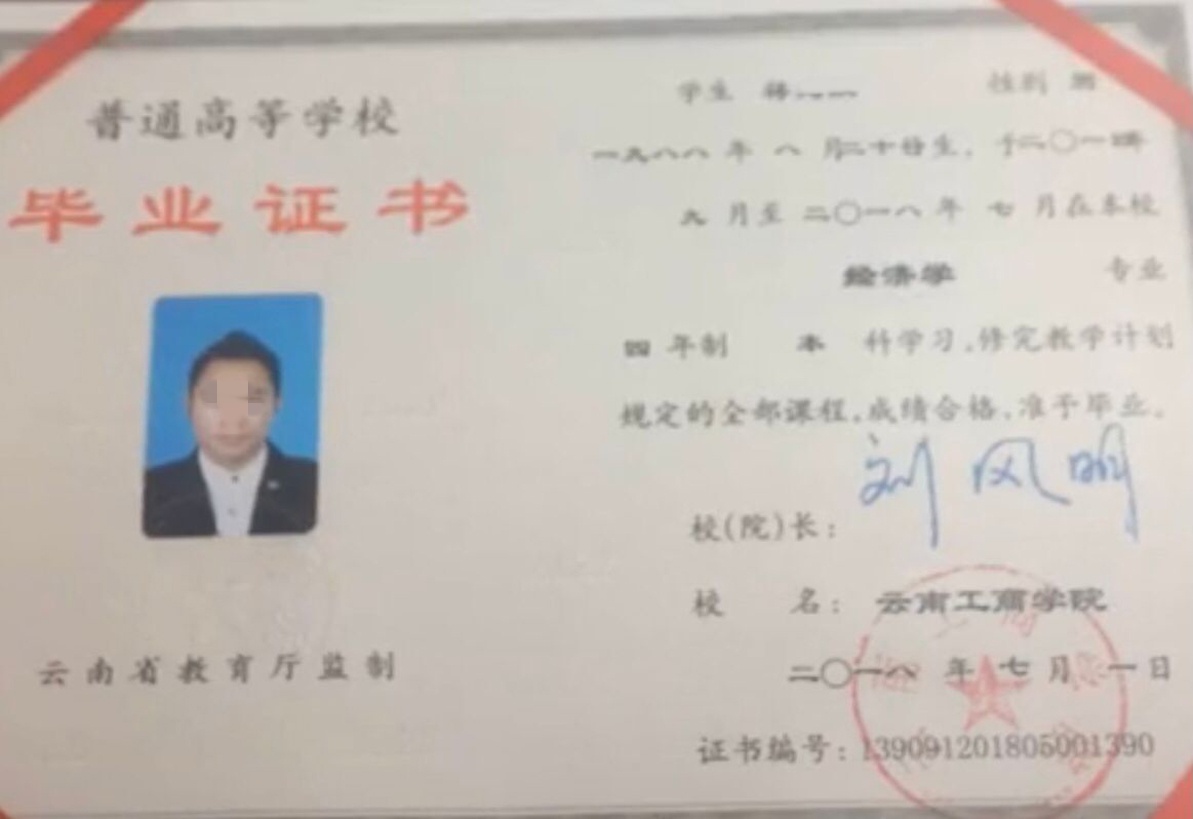 普通高等学校
毕业证书
云南省教育厅监制
学生 性别
一九八八年 八 月二十 日生，于二〇一四年
九 月至 二〇一八 年 七 月在本校
经济学 专业
四 年制 本 科学习，修完教学计划
规定的全部课程，成绩合格，准予毕业。
刘凤明
校(院)长：
校 名：云南工商学院
二〇一八 年 七 月 一日
证书编号：139091201805001390